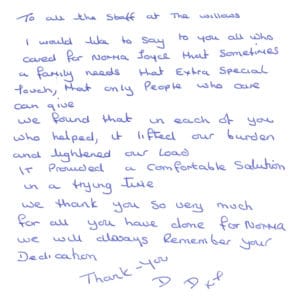 To all the Staff at The Willows
I would like to say to you all who
cared for Norma Joyce that sometimes
a family needs that Extra Special
Touch, that only People who care
can give
we found that in each of you
who helped, it lifted our burden
and lightened our Load
IT Provided a Comfortable Solution
in a trying time
we thank you so very much
for all you have done for Norma
we will always Remember your
Dedication
Thank-you